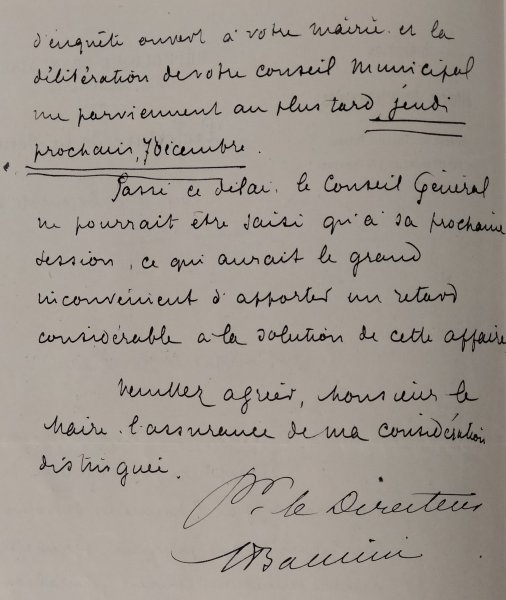 d'enquête ouvert à votre mairie et la
délibération de votre conseil Municipal
me parviennent au plus tard, jeudi
prochain, 7 décembre.
Passé ce délai, le Conseil Général
ne pourrait être saisi qu'à sa prochaine
session, ce qui aurait le grand
inconvénient d'apporter un retard
considérable à la solution de cette affaire
Veuillez agréer, Monsieur le
Maire, l'assurance de ma considération
distinguée.
Pr le Directeur